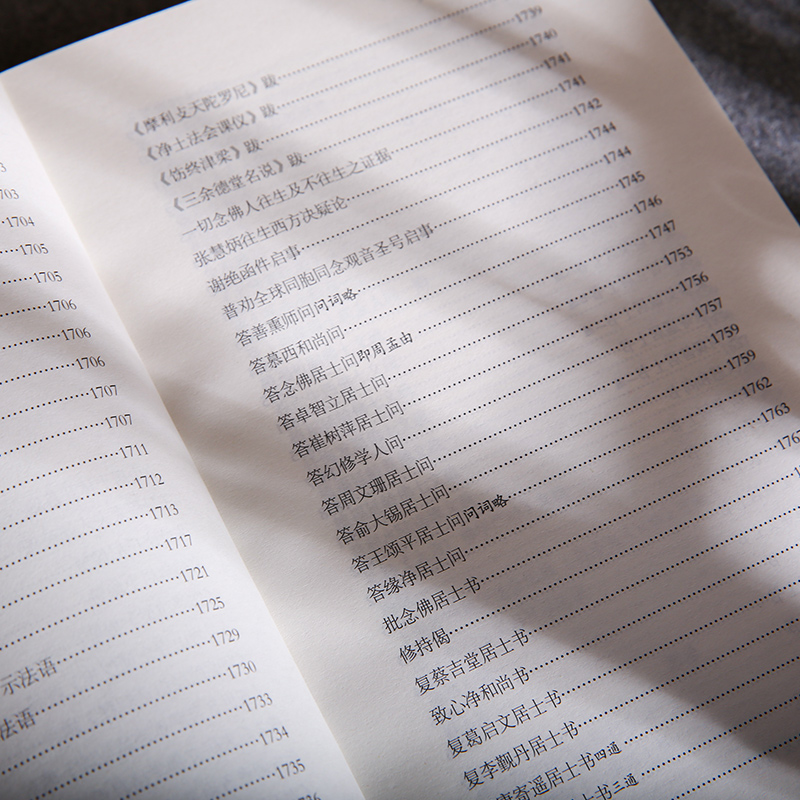 3
703
1704
1705
1705
1706
1706
1706
1707
1707
1711
1712
1713
1717
1721
示法语 1725
法语 1729
1730
1733
1734
1735
1736
《摩利支天陀罗尼》跋 1739
《净土法会课仪》跋 1740
《饬终津梁》跋 1741
《三余德堂名说》跋 1741
一切念佛人往生及不往生之证据 1742
张慧炳往生西方决疑论 1744
谢绝函件启事 1744
普劝全球同胞同念观音圣号启事 1745
答善熏师问问词略 1746
答慕西和尚问 1747
答念佛居士问即周孟由 1753
答卓智立居士问 1756
答崔树萍居士问 1757
答幻修学人问 1759
答周文珊居士问 1759
答俞大锡居士问 1762
答王颂平居士问问词略 1763
答缘净居士问 176
批念佛居士书
修持偈
复蔡吉堂居士书
致心净和尚书
复葛启文居士书
复李觐丹居士书
寄遥居士书四通
书三通